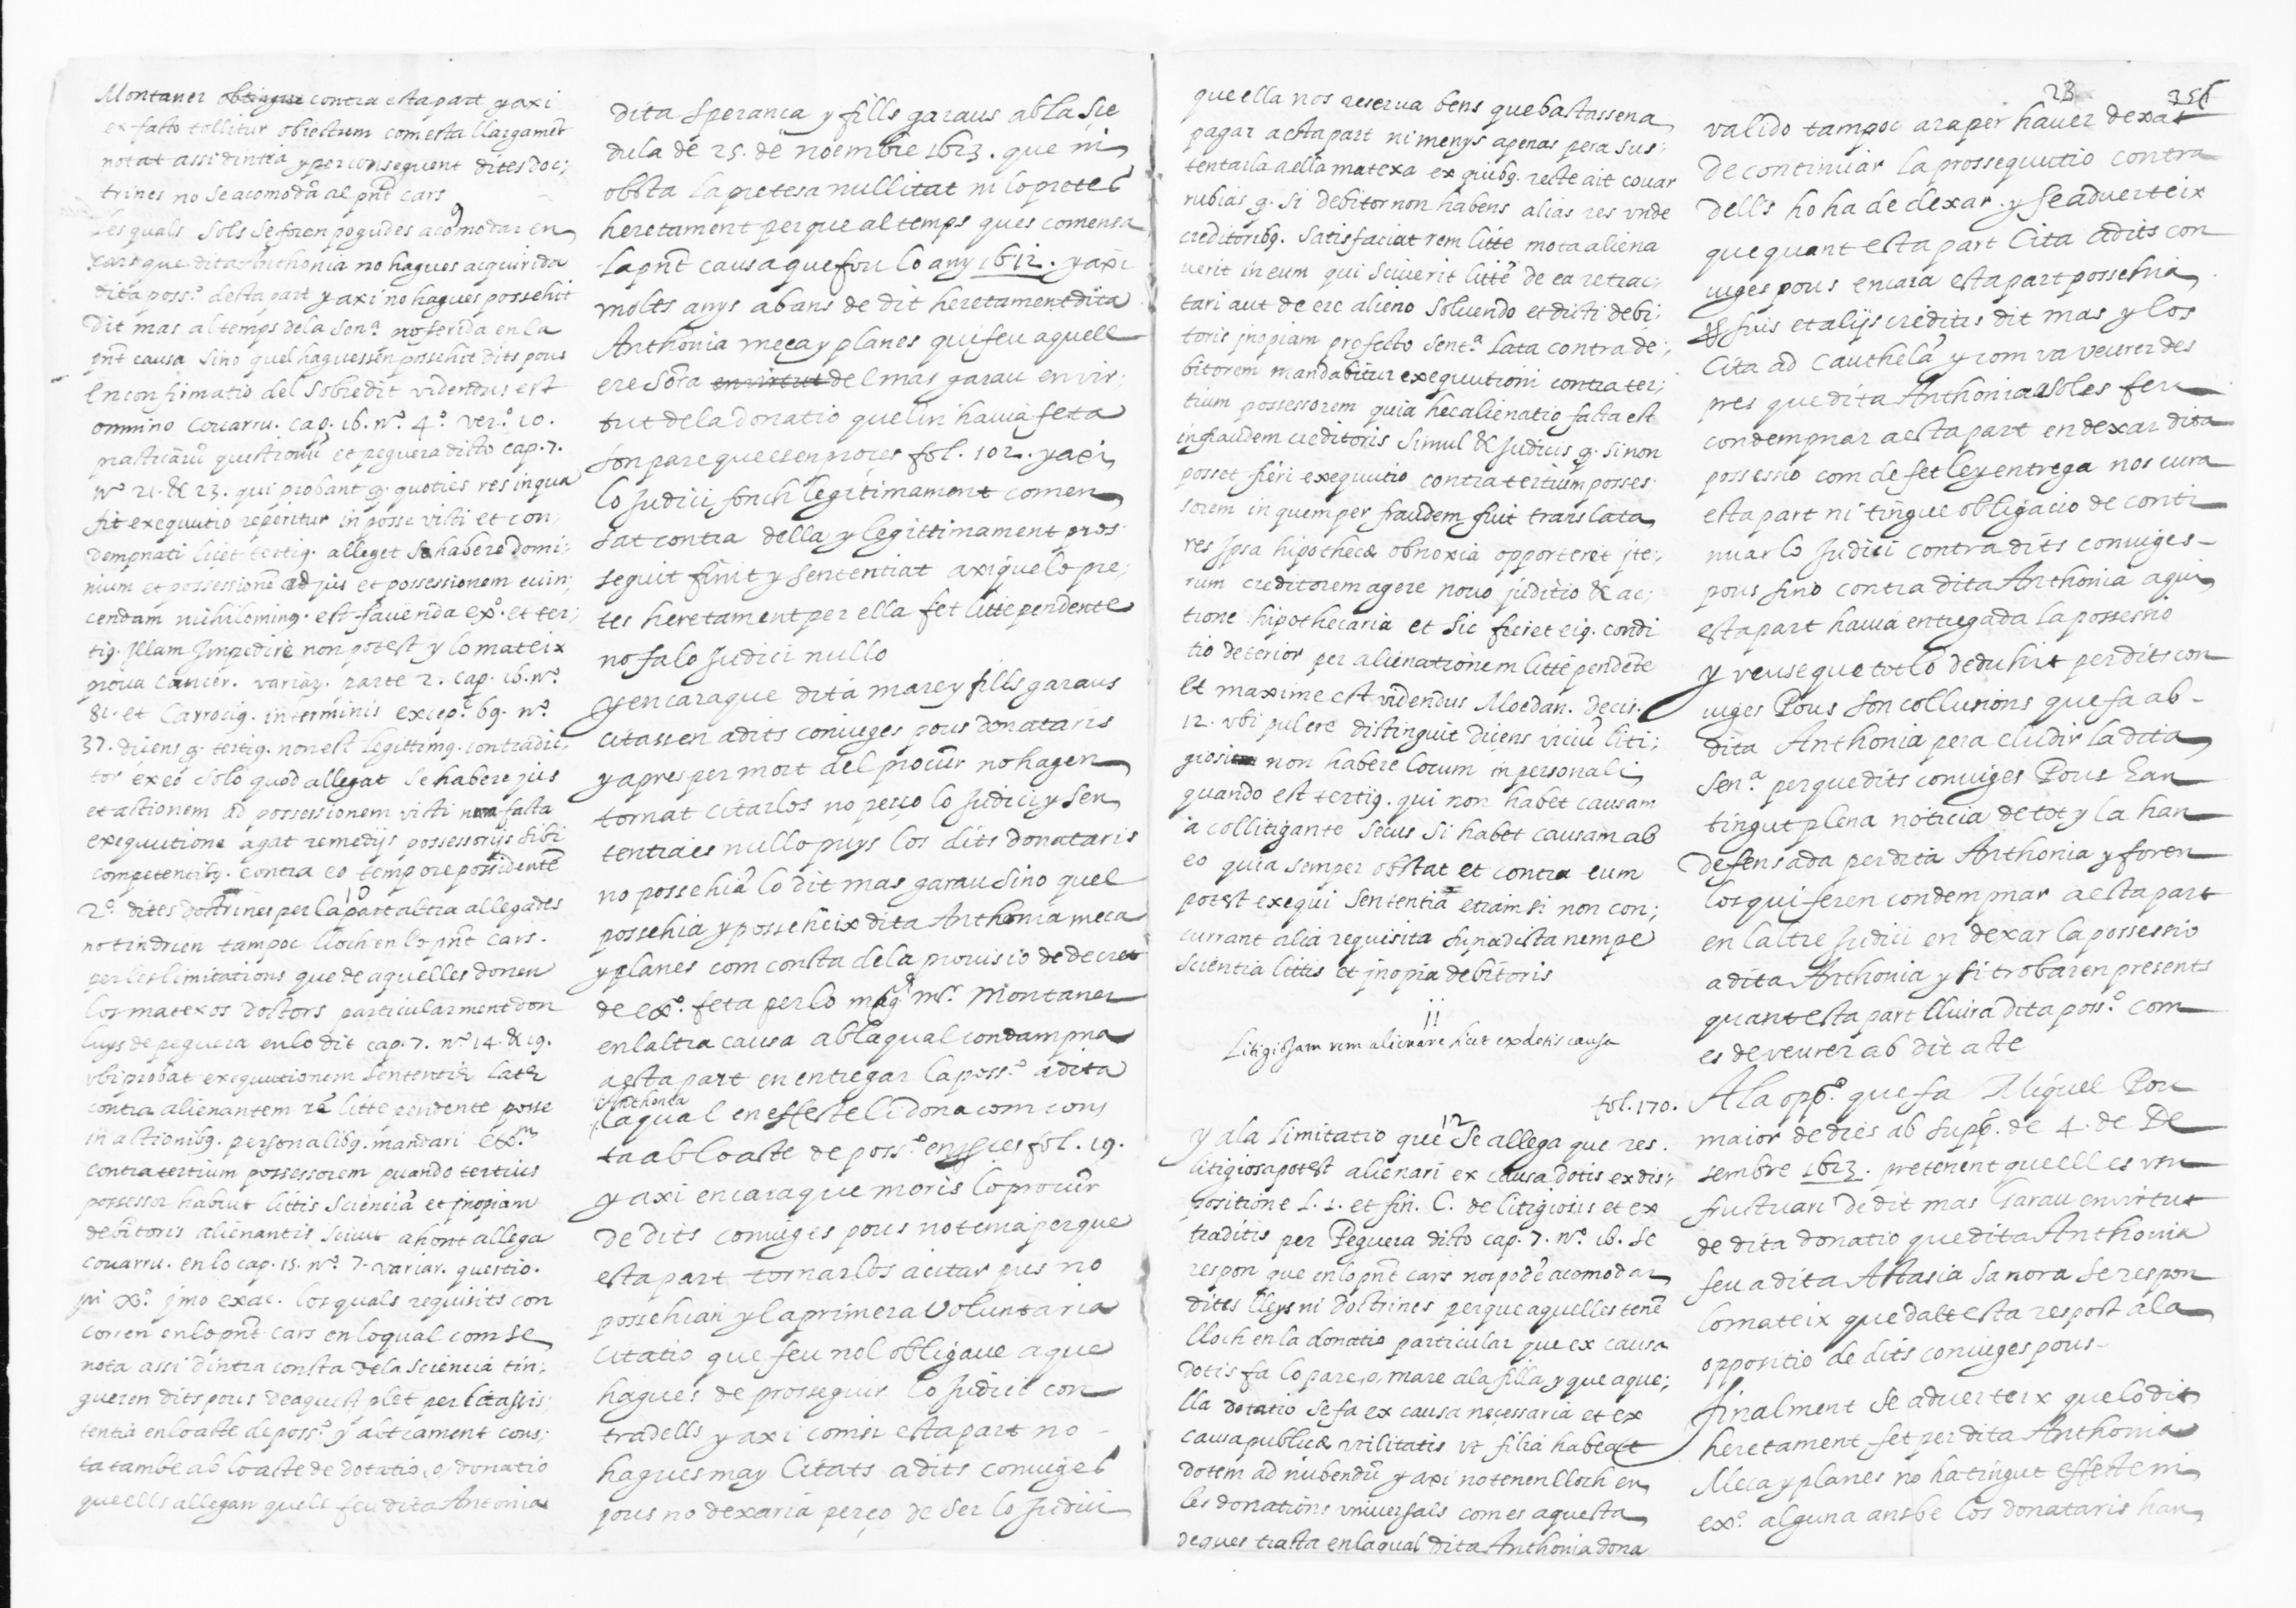 Montaner contra esta part y axi
ex facto tollitur obiectum com esta llargamēt
notat assi dintra y per consequent dites doc;
trines no se acomodā al pnt cars
9
les quals sols se foren pogudes acōmodar en
cars que dita Anthonia no hagues acquirida
dita poss.º desta part y axi no hagues possehit
dit mas al temps dela Sen.ª proferida en la
pnt causa sino quel haguessen possehit dits pous
En confirmatio del sobredit videndus est
omnino Couarru. cap. 16. nº. 4º. ver.º 10.
practicarū questionū et peguera dicto cap. 7.
nº 21. & 23. qui probant q. quoties res in qua
fit exequutio reperitur in posse victi et con;
dempnati licet tertiq. alleget se habere domi;
nium et possessionē ad jus et possessionem euin;
cendam nihilominq. est fauenda exº. et ter;
tiq. illam Impedire non potest y lo mateix
proua Cancer. variar. parte 2. cap. 16. nº.
81. et Carrociq. in terminis excep.º 69. nº.
37. dicens q. tertiq. non est legittimq. contradic;
tor ex eo solo quod allegat se habere jus
et actionem ad possessionem victi facta
exequutione agat remedijs possessorijs sibi
competentibq. contra eo tempore possidentē
10
2º. dites doctrines per la part altra allegades
no tindrien tampoc lloch en lo pnt cars.
per les limitations que de aquelles donen
los matexos doctors particularment don
luys de peguera en lo dit cap. 7. nº 14. & 19.
vbi probat exequutionem sententiæ latæ
contra alienantem rē litte pendente posse
in actionibq. personalibq. mandari
contra tertium possessorem quando tertius
possessor habuit littis scienciā et jnopiam
debitoris alienantis sciuit ahont allega
couarru. en lo cap. 15. nº. 7. variar. questio.
jmo exac. los quals requisits con
corren en lo pnt cars en lo qual com se
nota assi dintra consta dela sciencia tin;
gueren dits pous de aquest plet per la assis;
tentia en lo acte de poss.º y altrament cons;
ta tambe ab lo acte de dotatio, o, donatio
que ells allegan quels feu dita Antonia
dita Speranca y fills garaus ab la sce
dula de 25. de noembre 1623. que ni
obsta la pretesa nullitat ni lo pretes
heretament perque al temps ques comensa
la pnt causa que fou lo any 1612. y axi
molts anys abans de dit heretament dita
Anthonia meca y planes qui feu aquell
ere Sōra en virtut del mas garau en vir;
tut dela donatio que lin hauia feta
son pare que es en proces fol. 102. y axi
lo Judici fonch legitimament comen
sat contra della y legittimament pros
seguit finit y sententiat axi que lo pre;
tes heretament per ella fet litte pendente
no fa lo Judici nullo
y encara que dita mare y fills garaus
citassen a dits coniuges pous donataris
y apres per mort del procūr no hagen
tornat citarlos no perço lo Judici y sen
tentia es nullo puys los dits donataris
no possehiā lo dit mas garau sino quel
possehia y posseheix dita Anthonia meca
y planes com consta dela prouisio de decret
de exº. feta per lo magᶜ. mº. Montaner
en laltra causa ab la qual condampna
a esta part en entregar la poss.º a dita
Anthonia
la qual en effecte li dona com cons
ta ab lo acte de poss.º en proces fol. 19.
y axi encara que moris lo procūr
de dits coniuges pous no tenia perque
esta part tornarlos a citar pus no
possehian y la primera voluntaria
citatio que feu nol obligaue a que
hagues de prosseguir lo Judici con
tra dells y axi com si esta part no
hagues may citats a dits coniuges
pous no dexaria perço de ser lo Judici
que ella nos reserua bens que bastassen a
pagar a esta part ni menys apenas pera sus;
tentarla a ella matexa ex quibq. recte ait couar
rubias q. si debitor non habens alias res vnde
creditoribq. satisfaciat rem litte mota aliena
uerit in eum qui sciuerit littē de ea retrac;
tari aut de ere alieno soluendo et dicti debi;
toris jnopiam profecto sent.ª lata contra de;
bitorem mandabitur exequutioni contra ter;
tium possessorem quia hec alienatio facta est
in fraudem creditoris simul & Judicis q. si non
posset fieri exequutio contra tertium posses
sorem in quem per fraudem fuit translata
res ipsa hipothecæ obnoxia opporteret jte;
rum creditorem agere nouo juditio & ac;
tione hipothecaria et sic fieret eiq. condi
tio deterior per alienationem litte pendēte
Et maxime est videndus Moedan. decis.
12. vbi pulcre distinguit dicens viciū liti;
giosi non habere locum in personali
quando est tertiq. qui non habet causam
a collitigante secus si habet causam ab
eo quia semper obstat et contra eum
potest exequi sententiā etiam si non con;
currant alia requisita supradicta nempe
scientia littis et jnopia debitoris
11
Litigiosam rem alienare licet ex dotis causa
fol. 170.
12
y ala limitatio que se allega que res.
litigiosa potest alienari ex causa dotis ex dis;
positione L. 1. et fin. C. de litigiosis et ex
traditis per Peguera dicto cap. 7. nº. 16. se
respon que en lo pnt cars nos podē acomodar
dites lleys ni doctrines perque aquelles tenē
lloch en la donatio particular que ex causa
dotis fa lo pare, o, mare ala filla y que aque;
lla dotatio se fa ex causa neçessaria et ex
causa publicæ vtilitatis vt filia habeat
dotem ad nubendū y axi no tenen lloch en
les donations vniuersals com es aquesta
de ques tracta en la qual dita Anthonia dona
23
256
valido tampoc ara per hauer dexat
de continuar la prossequutio contra
dells ho ha de dexar. y se aduerteix
que quant esta part cita a dits con
iuges pous encara esta part possehia
suis et alijs creditis dit mas y los
cita ad cauthelā y com va veurer des
pres que dita Anthonia a soles feu
condempnar a esta part en dexar dita
possessio com de fet ley entrega nos cura
esta part ni tingue obligacio de conti
nuar lo Judici contra dits coniuges
pous sino contra dita Anthonia a qui
esta part hauia entregada la possessio
y veuse que tot lo deduhit per dits con
iuges Pous son collusions que fa ab
dita Anthonia pera eludir la dita
sen.ª perque dits coniuges Pous han
tingut plena noticia de tot y la han
defensada per dita Anthonia y foren
los qui feren condempnar a esta part
en laltre Judici en dexar la possessio
a dita Anthonia y si trobaren presents
quant esta part lliura dita poss.º com
es de veurer ab dit acte
A la opp.º que fa Miquel Pou
maior de dies ab supp. de 4. de De
sembre 1623. pretenent que ell es vsu
fructuari de dit mas Garau en virtut
de dita donatio que dita Anthonia
feu a dita Astasia sa nora se respon
lo mateix que dalt esta respost ala
oppositio de dits coniuges pous
finalment se aduerteix que lo dit
heretament fet per dita Anthonia
Meca y planes no ha tingut effecte ni
exº. alguna ans be los donataris han